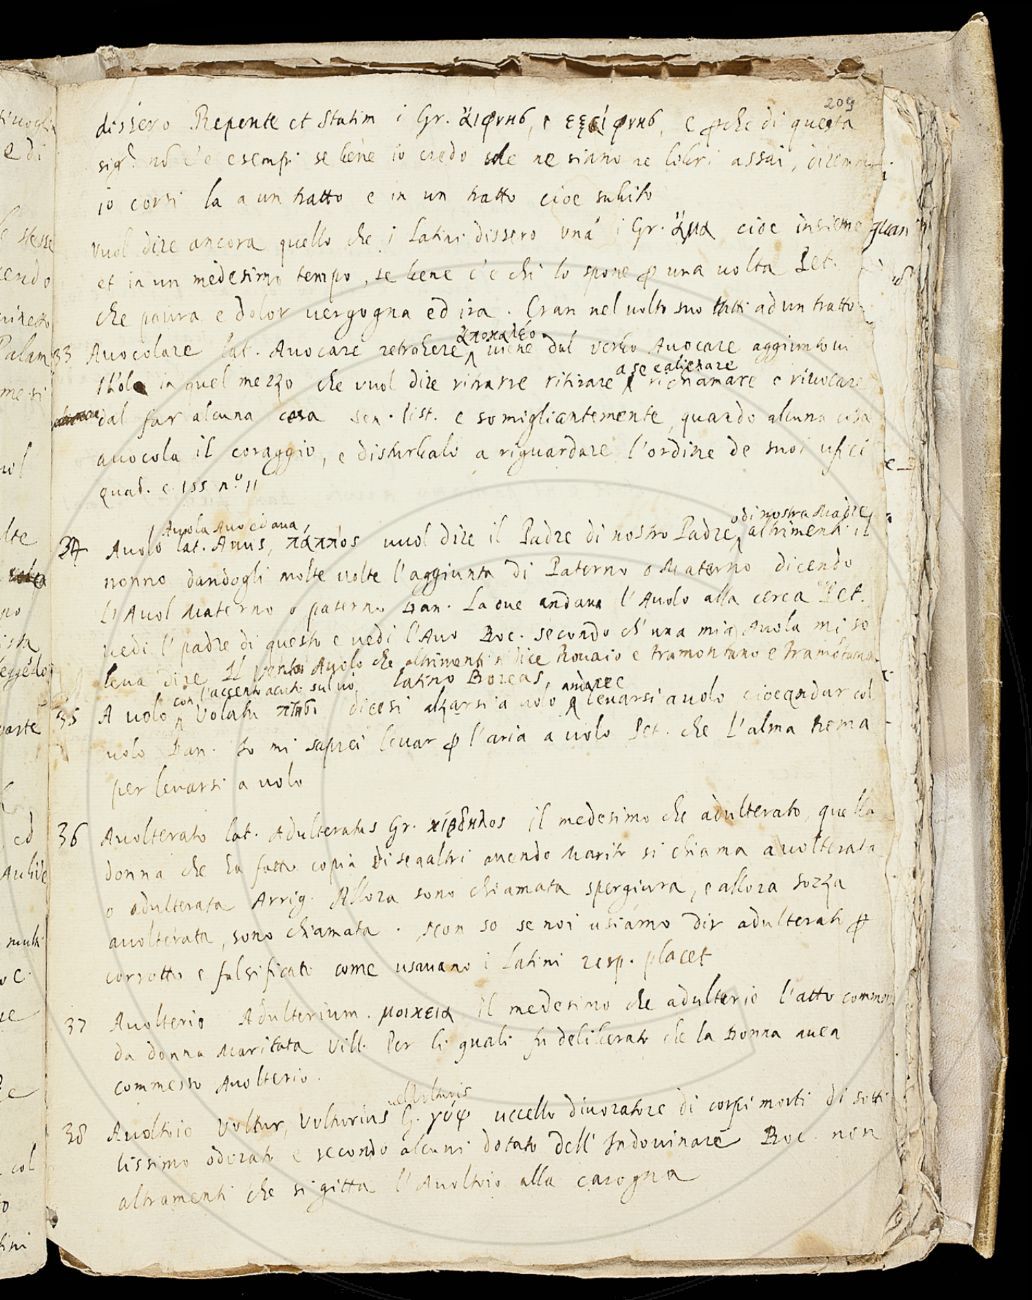 209
dissero Repente et Statim i Gr. ἄιφνης, e ἐξαίφνης, e perche di questa
sig.e nō c'e esempi se bene io credo che ne siano ne libri assai, diremmo
io corsi la a un tratto e in un tratto cioe subito
vuol dire ancora quello che i Latini dissero unà i Gr. ἅμα cioe insieme
et in un medesimo tempo, se bene c'e chi lo spone per una volta Pet.
che paura e dolor vergogna ed ira. Eran nel volto suo tutti ad un tratto
33 Avocolare lat. Avocare retrahere ἀποκαλέο viene dal verbo Avocare aggiuntovi
in quel mezzo che vuol dire ritrarre ritirare a se alienare richiamare e rivocare
dal far alcuna cosa Sen. Pist. e somigliantemente quando alcuna cosa
avocola il coraggio, e disturbalo a riguardare l'ordine de suoi ufici
quad. c. 155 n.o 11
34 Avolo Avola Avo ed ava, lat. Avus, πάππος vuol dire il Padre di nostro Padre o di nostra Madre, altrimenti il
nonno dandogli molte volte l'aggiunta di Paterno o Materno dicendo
l'Avol Materno o paterno Dan. La ove andava l'Avolo alla cerca Pet.
vedi l'padre di questo e vedi l'Avo Boc. secondo ch'una mia Avola mi so
leva dire Il vento Avolo che altrimenti si dice Rovaio e tramontano e tramontana
latino Boreas,
35 A volo con l'accento acuto sul vo Volatu dicesi alzarsi a volo andare levarsi a volo cioe andar col
volo Dan. Io mi saprei levar per l'aria a volo Pet. che l'alma trema
per levarsi a volo
36 Avolterato lat. Adulteratus Gr. κίβδηλος il medesimo che adulterato, quella
donna che ha fatto copia di se ad altri avendo Marito si chiama avolterata
o adulterata Arrig. Allora sono chiamata spergiura, e allora sozza
avolterata, sono chiamata. Non so se noi usiamo dir adulterato per
corrotto e falsificato come usavano i Latini resp. placet
37 Avolterio Adulterium. μοιχεια il medesimo che adulterio l'atto commesso
da donna Maritata Vill. Per li quali fu deliberato che la Donna avea
commesso Avolterio.
38 Avoltoio Voltur, Volturius vel Vulturis G. γύψ uccello divoratore di corpi morti di sotti
lissimo odorato e secondo alcuni dotato dell'Indovinare Boc. non
altramenti che si gitta l'Avoltoio alla carogna